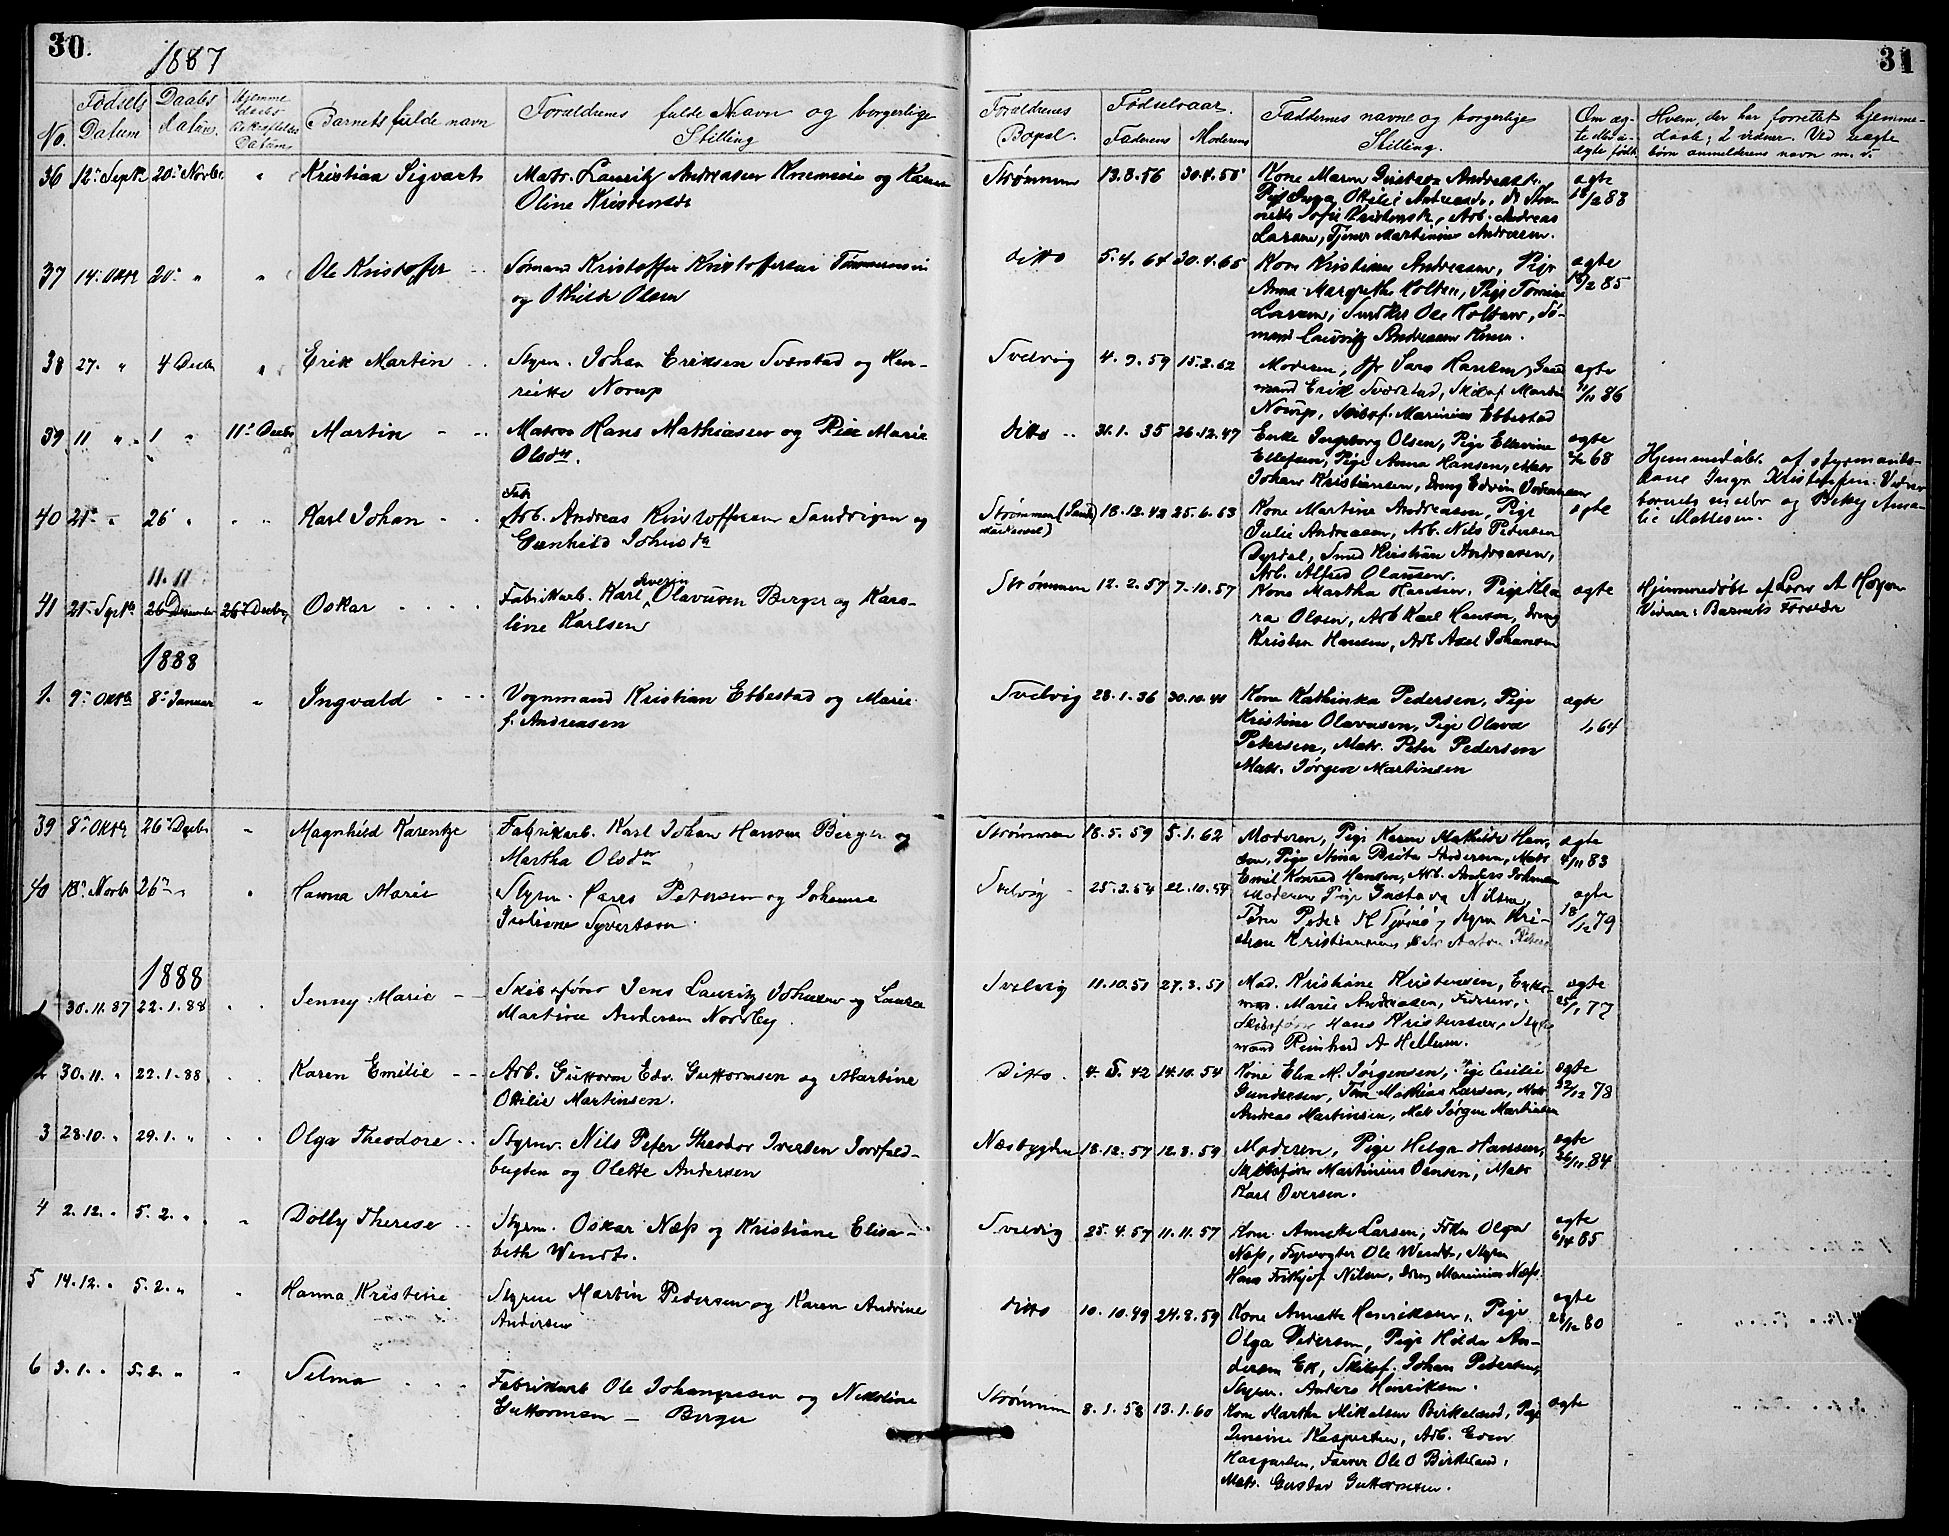 30.
1887
No.
Fødsels Datum
Daabs datum.
Hjemme døbts Datum
Barnets fulde navn
Forældrenes fulde Navn og borgerlige Stilling
36 12te Septb. 20de Novbr. " Kristian Sigvart
Matr. Lauritz Andreasen Knemoie og Karen
Oline Kristensdr
37 14. Oktr 20de " " Ole Kristoffer
Sømand Kristoffer Kristoffersen
og Othilde Olsen
38 27. " 4 Decbr " Erik Martin
Styrm. Johan Eriksen Sværstad og Hen-
riette Norup
39 11 " 1 " 11te Decbr Martin
Matros Hans Mathiasen og Pia Marie
Olsdtr.
40 21de " 26 " " Karl Johan
Arb. Andreas Kristoffersen Sandvigen og
Gunhild Johnsdr
11.11
41 21de Septbr 26 December 26de Decbr Oskar
Fabrikarb. Karl Severin Olavusen Berger og Karo-
line Karlsen
1888
1. 9de Oktbr 8de Januar " Ingvald
Vognmand Kristian Ebbestad og Marie
f. Andreasen
39 8de Oktbr 26de Decbr " Magnhild Karentze
Fabrikarb. Karl Johan Hansen Berger og
Martha Olsdtr
40 18de Novbr 26de " " Hanna Marie
Styrm. Lars Petersen og Johanna
Juliane Syvertsen
1888
1 30.11.87 22.1.88 Jenny Marie
Skibsfører Jens Lauritz Johnsen og Laura
Martine Andersen Nordby.
2 30.11. " 22.1.88 Karen Emilie
Arb. Guttorm Edv. Guttormsen og Martine
Otilie Martinsen.
3 28.10. " 29.1. " Olga Theodore
Styrm. Nils Peter Theodor Iversen
bugten og Olette Andersen
4 2.12. " 5.2. " " Dolly Therese
Styrm. Oskar Næss og Kristiane Elisa-
beth Wendt.
5 14.12. " 5.2. " " Hanna Kristine
Styrm Martin Pedersen og Karen Andrine
Andersen
6 3.1. " 5.2. " " Selma
Fabrikarb Ole Johannesen og Nikoline
Guttormsen — Berger
31
Forældrenes Bopæl.
Fødselsaar.
Faderens Moderens
Faddernes navne og borgerlige Stilling.
Om æg-
te eller u-
ægte født
Hvem, der har forrettet hjemme-
daab; 2 vidner. Ved uægte
børn anmelderens navn m. v.
Strømmen 13.8.56 30.4.55
Kone Maren Gustava Andreasdr.
Pige Inga Otilie Andreasdr.
Sofie Kristensdr, Arb. Andreas
Larsen, Tjener Martinius Andersen.
ægte 88
ditto 5.4.64 30.4.65
Kone Kristiane Andreasen, Pige
Anna Margrethe Holten, Pige
Larsen, Ole Holten, Sø-
mand Lauritz Andreasen
ægte 85
Svelvig 4.9.59 15.2.62
Moderen, Jfr Sara Hansen,
mand Erik Sværstad, Skibsf. Martin
Norup, Skibsf. Marinius Ebbestad
ægte 86
ditto 31.1.35 26.12.47
Enke Ingeborg Olsen, Pige Ellevine
Ellefsen, Pige Anna Hansen, Matr
Johan Kristiansen, Dreng Edvin
ægte 68
Hjemmedøbt af styrmands-
kone Inga Kristensen. Vidner
barnets moder og Ama-
lie Mattesen.
Strømmen 18.12.42 25.6.53
Kone Martine Andreasen, Pige
Julie Andreasen, Arb. Nils Petersen
Dyrdal, Smed Kristian Andreasen,
Arb. Alfred Olausen.
ægte
Strømmen 12.2.57 7.10.57
Kone Martha Hansen, Pige Kla-
ra Olsen, Arb Karl Hansen, Dreng
Kristen Hansen, Arb Axel Johansen
ægte
Hjemmedøbt af A Hagen
Vidner: Barnets Forældre
Svelvig 28.1.36 30.10.41
Kone Kathinka Pedersen, Pige
Kristine Olavusen, Pige Olava
Petersen, Matr. Peter Pedersen
Matr. Jørgen Martinsen
ægte 64
Strømmen 18.5.59 5.1.62
Moderen, Pige Karen Mathilde Han-
sen, Pige Nina Andersen, Matr
Emil Konrad Hansen, Arb. Anders Johnsen
ægte 4/11 83
Svelvig 25.2.54 22.10.54
Moderen Pige Gustava Nilsen,
Peter H Tjømø, styrm Kri-
stian Kristiansen, Anton
ægte 18/12 79
Svelvig 11.10.51 27.3.51
Mad. Kristine Kristensen, Enke-
mad. Marie Andreasen,
Skibsfører Hans Kristensen, Styr-
mand Reinhard A Hellesen.
ægte 77
Ditto 4.5.42 14.10.54
Kone Elen M. Jørgensen, Pige Cecilie
Gundersen, Tøm Mathias Larsen, Matr
Andreas Martinsen, Matr Jørgen Martinsen
ægte 22/12 78
Næsbygden 18.12.57 12.8.59
Moderen, Pige Helga Hansen,
Skibsfører Martinius Jensen, Matr
Karl Iversen.
ægte 26/11 84
Svelvig 25.4.57 11.11.57
Kone Annette Larsen, Frkn Olga
Næss, Fyrvogter Ole Wendt, Styrm
Hans Fritjof Nilsen, Dreng Marinius Næss
ægte 85
ditto 10.10.49 24.8.59
Kone Annette Henriksen, Pige
Olga Pedersen, Pige Hilda An-
dersen Ek, Skibsf. Johan Pedersen,
Styrm. Anders Henriksen.
ægte 28/12 80
Strømmen 8.1.58 13.1.60
Kone Marthe Mikelsen Birkeland, Pige
Jensine Kaspersen, Arb. Even
Kaspersen, Farver Ole O Birkeland,
Matr. Gustav Guttormsen.
ægte